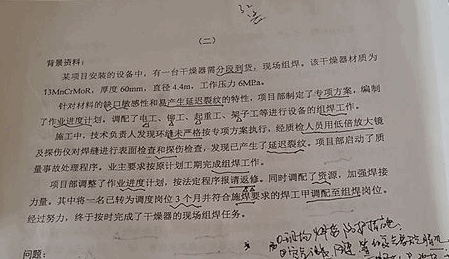 (二)
背景资料:
某项目安装的设备中,有一台干燥器需分段到货,现场组焊。该干燥器材质为
13MnCrMoR,厚度60mm,直径4.4m,工作压力6MPa。
针对材料的缺口敏感性和易产生延迟裂纹的特性,项目部制定了专项方案,编制
了作业进度计划,调配了电工、铆工、起重工、架子工等进行设备的组焊工作。
施工中,技术负责人发现环缝未严格按专项方案执行,经质检人员用低倍放大镜
及探伤仪对焊缝进行表面检查和探伤检查,发现已产生了延迟裂纹。项目部启动了质
量事故处理程序。业主要求按原计划工期完成组焊工作。
项目部调整了作业进度计划,按法定程序报请返修。同时调配了资源,加强焊接
力量。其中将一名已转为调度岗位3个月并符合施焊要求的焊工甲调配至组焊岗位。
经过努力,终于按时完成了干燥器的现场组焊任务。
问题: